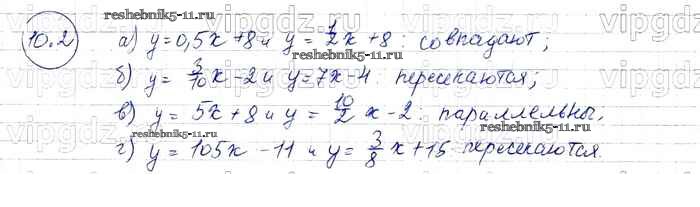 reshebnik5-11.ru
10.2 а) y = 0,5x + 8 и y = 1/2 x + 8 : совпадают;
reshebnik5-11.ru
б) y = 3/10 x - 2 и y = 7x - 4 : пересекаются;
в) y = 5x + 8 и y = 10/2 x - 2 : параллельны,
reshebnik5-11.ru
г) y = 105x - 11 и y = 3/8 x + 15 : пересекаются.
reshebnik5-11.ru
vipgdz.ru vipgdz.ru vipgdz.ru